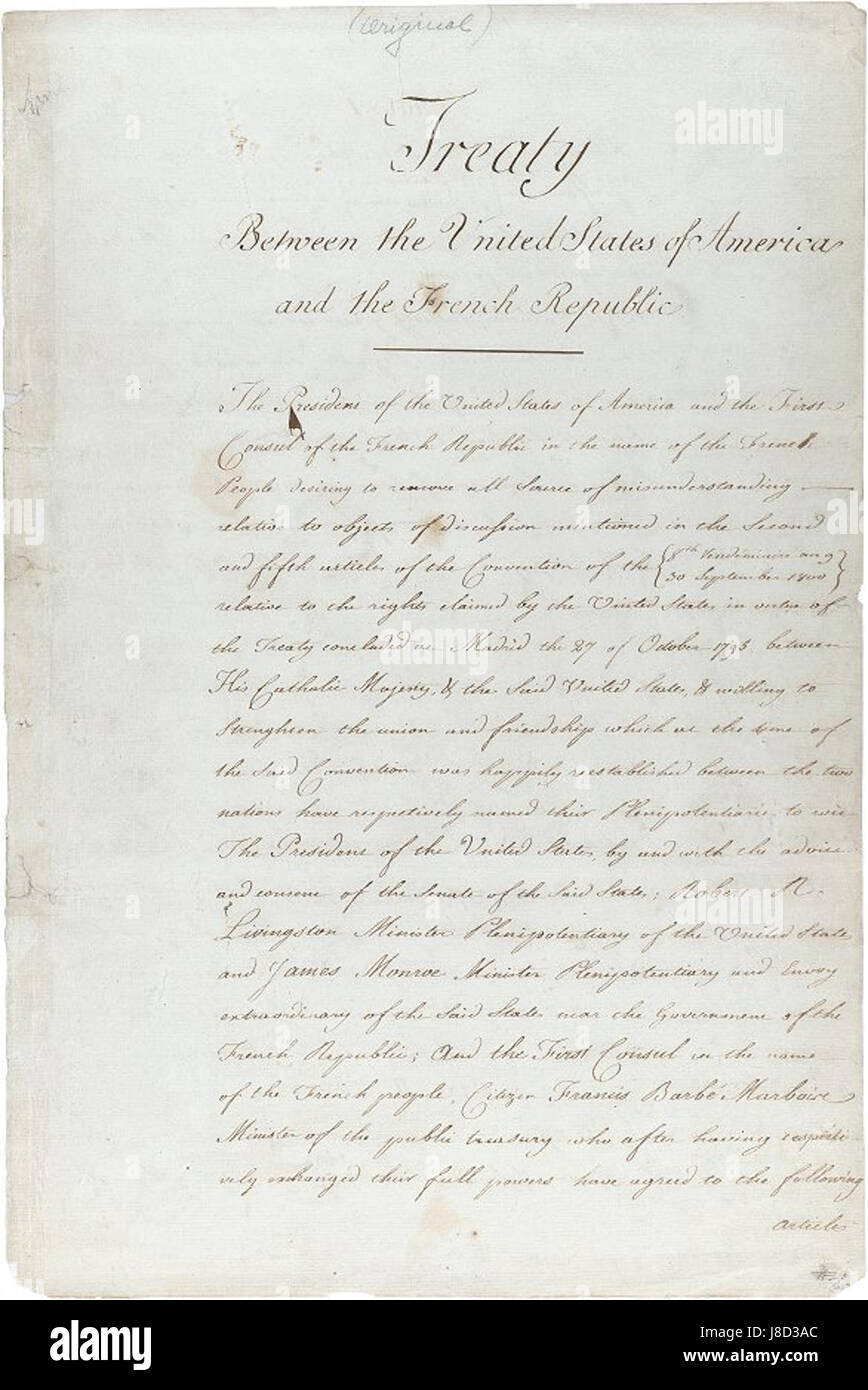 (Original)
Treaty
Between the United States of America
and the French Republic
The President of the United States of America and the First
Consul of the French Republic in the name of the French
People desiring to remove all Source of misunderstanding
relative to objects of discussion mentioned in the Second
and fifth articles of the Convention of the {8th Vendémiaire an 9
30 September 1800}
relative to the rights claimed by the United States in virtue of
the Treaty concluded at Madrid the 27 of October 1795, between
His Catholic Majesty, & the Said United States, & willing to
Strenghten the union and friendship which at the time of
the Said Convention was happily reestablished between the two
nations have respectively named their Plenipotentiaries to wit
The President of the United States, by and with the advice
and consent of the Senate of the Said States; Robert R.
Livingston Minister Plenipotentiary of the United States
and James Monroe Minister Plenipotentiary and Envoy
extraordinary of the Said States near the Government of the
French Republic; And the First Consul in the name
of the French people, Citizen Francis Barbé Marbois
Minister of the public treasury who after having respecti
vely exchanged their full powers have agreed to the following
articles
alamy
Image ID: J8D3AC
www.alamy.com